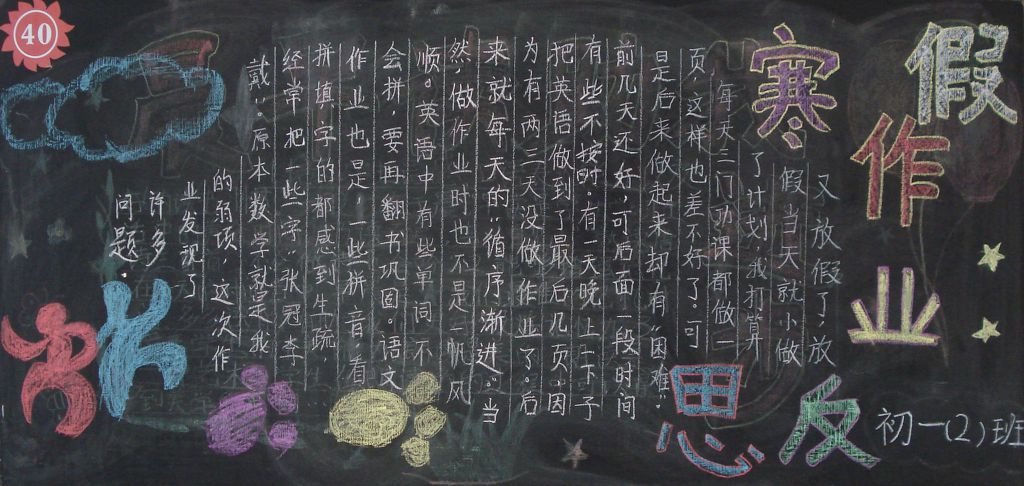 40
寒假
作
业
反思
初一(2)班
又放假了,放
假当天就小做
了计划,我打算
每天三门功课都做一
页,这样也差不好了;可
是后来做起来却有“困难”。
前几天还好,可后面一段时间
有些不按时。有一天晚上一下子
把英语做到了最后几页,因
为有两三天没做作业了。后
来就每天的“循序渐进。”当
然,做作业时也不是一帆风
顺。英语中有些单词不
会拼,要再翻书巩固。语文
作业也是,一些拼音看
拼填字的都感到生疏,
经常把一些字“张冠李
戴”。原本数学就是我
的弱项,这次作
业发现了
许多
问题.